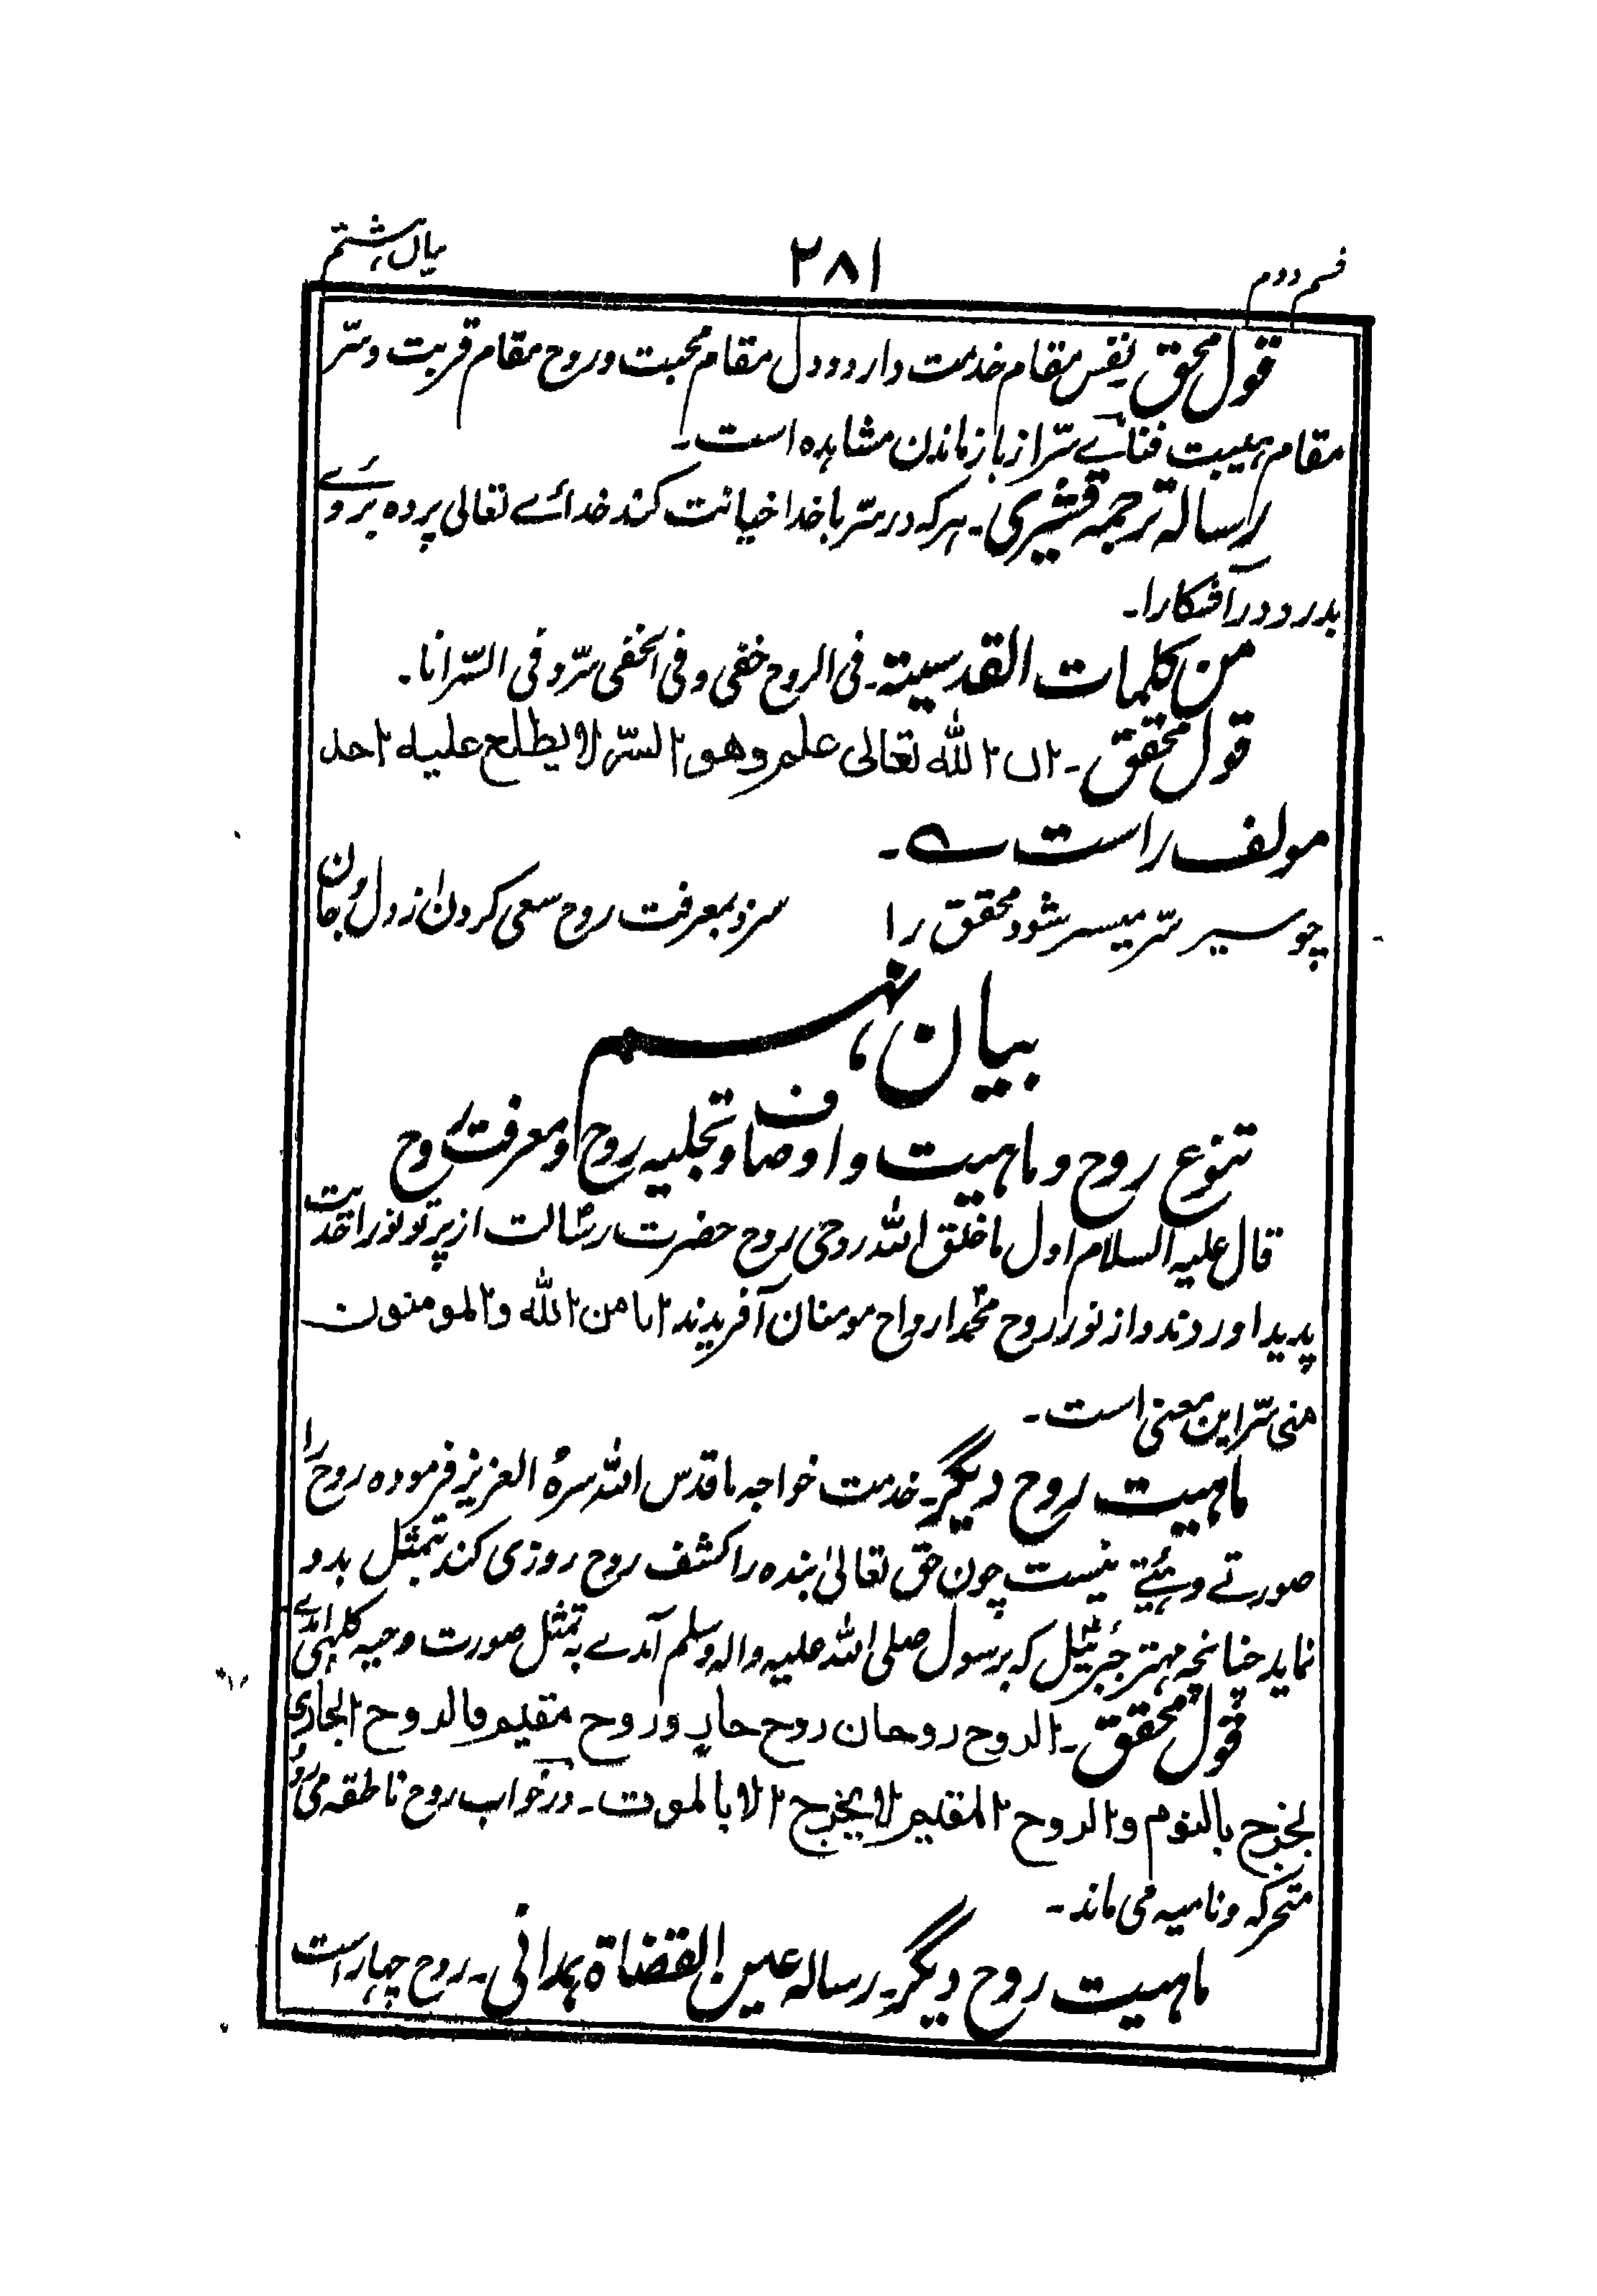 قسم دوم
۲۸۱
بیان ہشتم
قول محقق نفس مقام خدمت دارد و دل مقام محبت و روح مقام قربت و سرّ
مقام ہیبت فنائے سرّ از باز ماندن مشاہدہ است۔
رسالہ ترجمہ قشیری۔ ہرکہ در سرّ با خدا خیانت کند خدائے تعالی پردہ بروئے
بدرد در آشکارا۔
من کلمات القدسیۃ۔ فی الروح خفی و فی الخفی سرّ و فی السّر انا۔
قول محقق۔ ان الله تعالی علم وھو السّر لا یطلع علیہ احد
مولف راست ے۔
چو سیر سرّ میسر شود محقق را سزد بمعرفت روح سعی کردن از دل و جان
بیان نہم
تنوع روح و ماہیت و اوصاف و تجلیہ روح او معرفت روح
قال علیہ السلام اول ما خلق اللہ روحی روح حضرت رسالت از پرتو نور احدیت
پدید اوردند و از نور روح محمد ارواح مومنان آفریدند انا من الله والمومنون
منی سرّ این معنی است۔
ماہیت روح دیگر۔ خدمت خواجہ ما قدس اللہ سرہ العزیز فرمودہ روح را
صورتے و ہئیتے نیست چون حق تعالیٰ بندہ را کشف روح روزی کند تمثل بدو
نماید چنانچہ مہتر جبرئیل کہ بر رسول صلی اللہ علیہ والہ وسلم آمدے بہ تمثل صورت وجیہ کلبی آمدے
قول محقق۔ الروح روحان روح جار وروح مقیم فالروح الجاری
یخرج بالنوم والروح المقیم لا یخرج الا بالموت۔ در خواب روح ناطقہ می رود
متحرکہ و نامیہ می ماند۔
ماہیت روح دیگر۔ رسالہ عین القضاۃ ہمدانی۔ روح چہار است